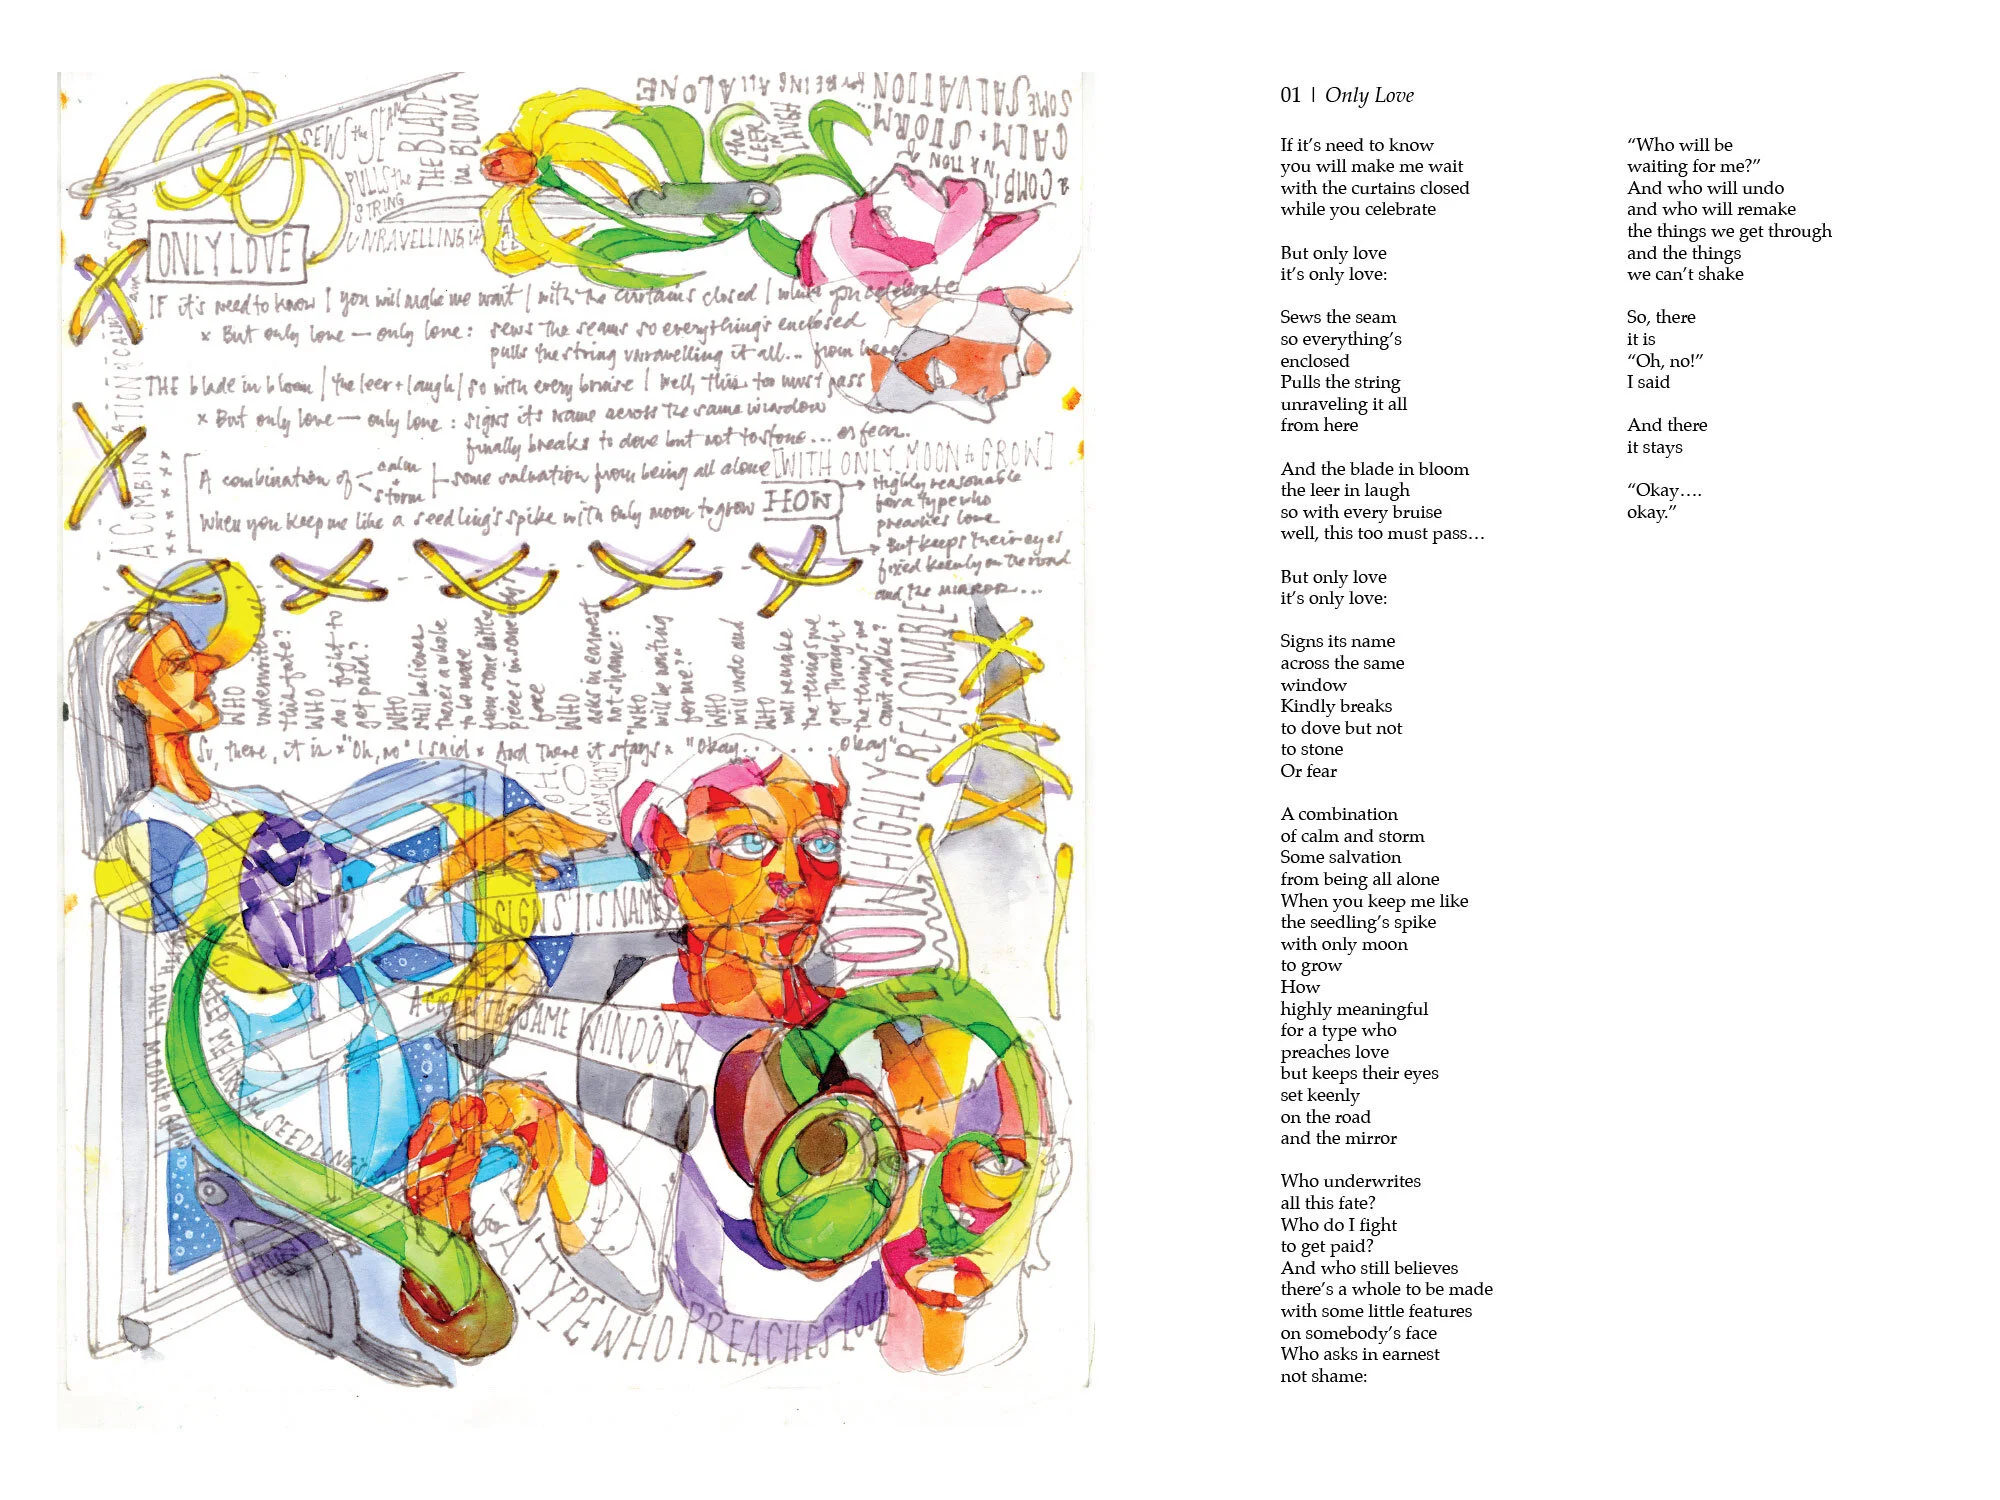 SEWS the SEAM
PULLS the
STRING
UNRAVELLING it ALL
THE BLADE
in BLOOM
the
LEER
in
LAUGH
a COMBI
NATION of
CALM + STORM...
SOME SALVATION for BEING ALL ALONE
ONLY LOVE
IF it's need to know / you will make me wait / with the curtains closed / while you celebrate
x But only love — only love: sews the seams so everything's enclosed
pulls the string unravelling it all... from here
THE blade in bloom / the leer + laugh / so with every bruise / well, this too must pass
x But only love — only love: signs its name across the same window
finally breaks to dove but not to stone... or fear.
A combination of calm + storm some salvation from being all alone [WITH ONLY MOON to GROW]
When you keep me like a seedling's spike with only moon to grow HOW
Highly reasonable
for a type who
preaches love
But keeps their eyes
fixed keenly on the road
and the mirror...
A COMBINATION of CALM and STORM
WHO
underwrites all
this fate?
WHO
do I fight to
get paid?
WHO
still believes
there's a whole
to be made
from some little
pieces in somebody's
face
WHO
asks in earnest
not shame:
"WHO
will be waiting
for me?"
WHO
will undo and
WHO
will remake
the things we
get through +
the things we
can't shake?
So, there, it is x "Oh, no" I said x And there it stays x "Okay. . . . . . okay"
OH
NO
OKAY OKAY
HOW HIGHLY REASONABLE
SIGNS ITS NAME
ACROSS THE SAME WINDOW
WHEN YOU KEEP ME LIKE the SEEDLING'S
for A TYPE WHO PREACHES LOVE
01 | Only Love
If it's need to know
you will make me wait
with the curtains closed
while you celebrate
But only love
it's only love:
Sews the seam
so everything's
enclosed
Pulls the string
unraveling it all
from here
And the blade in bloom
the leer in laugh
so with every bruise
well, this too must pass…
But only love
it's only love:
Signs its name
across the same
window
Kindly breaks
to dove but not
to stone
Or fear
A combination
of calm and storm
Some salvation
from being all alone
When you keep me like
the seedling's spike
with only moon
to grow
How
highly meaningful
for a type who
preaches love
but keeps their eyes
set keenly
on the road
and the mirror
Who underwrites
all this fate?
Who do I fight
to get paid?
And who still believes
there's a whole to be made
with some little features
on somebody's face
Who asks in earnest
not shame:
“Who will be
waiting for me?”
And who will undo
and who will remake
the things we get through
and the things
we can't shake
So, there
it is
“Oh, no!”
I said
And there
it stays
“Okay….
okay.”